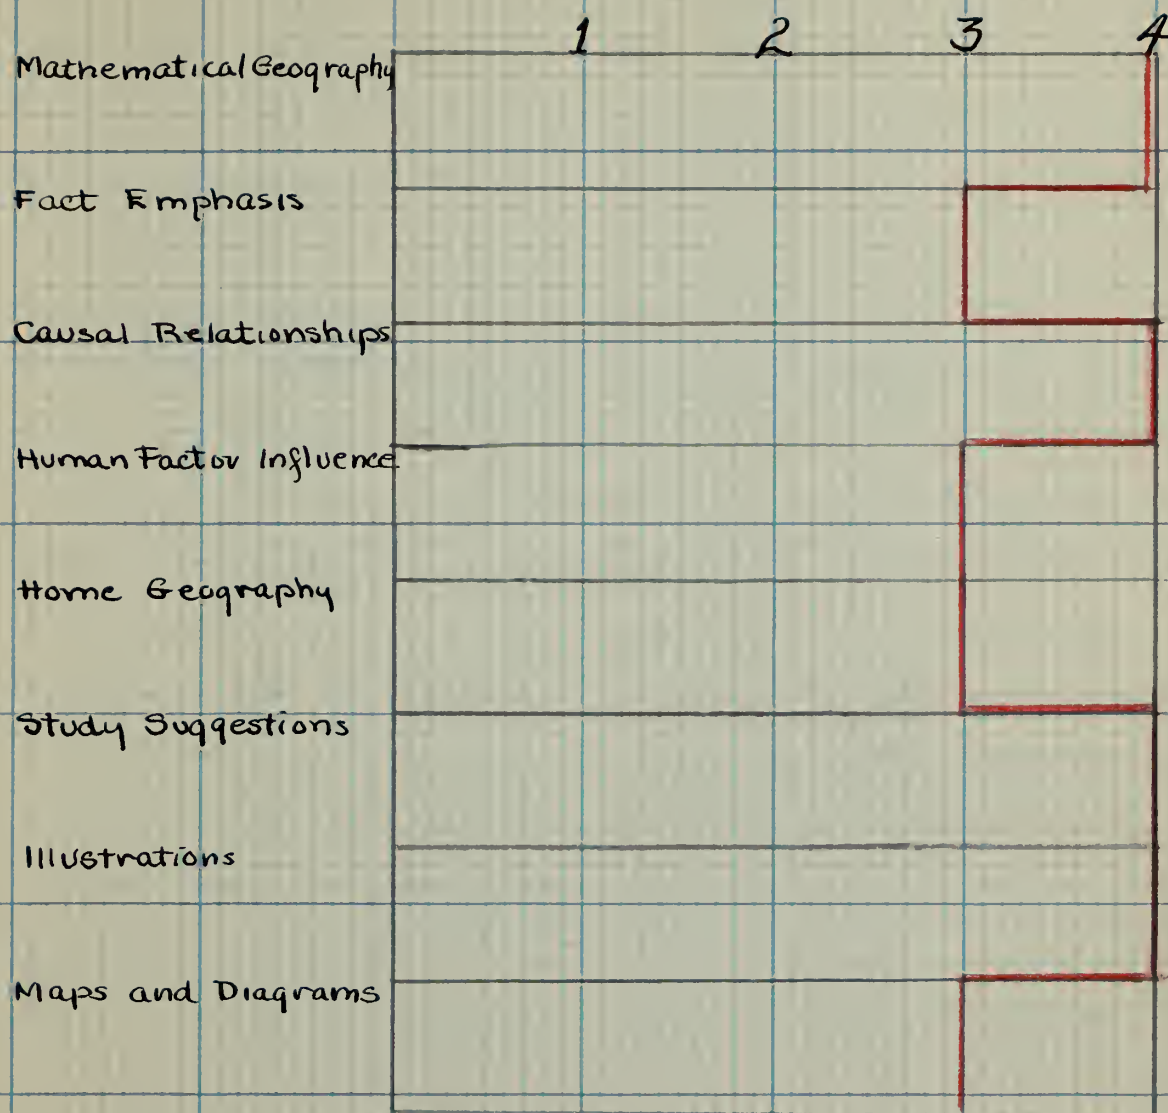 1 2 3 4
Mathematical Geography
Fact Emphasis
Causal Relationships
Human Factor Influence
Home Geography
Study Suggestions
Illustrations
Maps and Diagrams